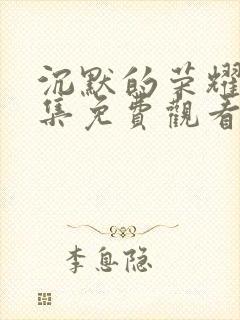 沉默的荣耀
集免費觀看
李息隐